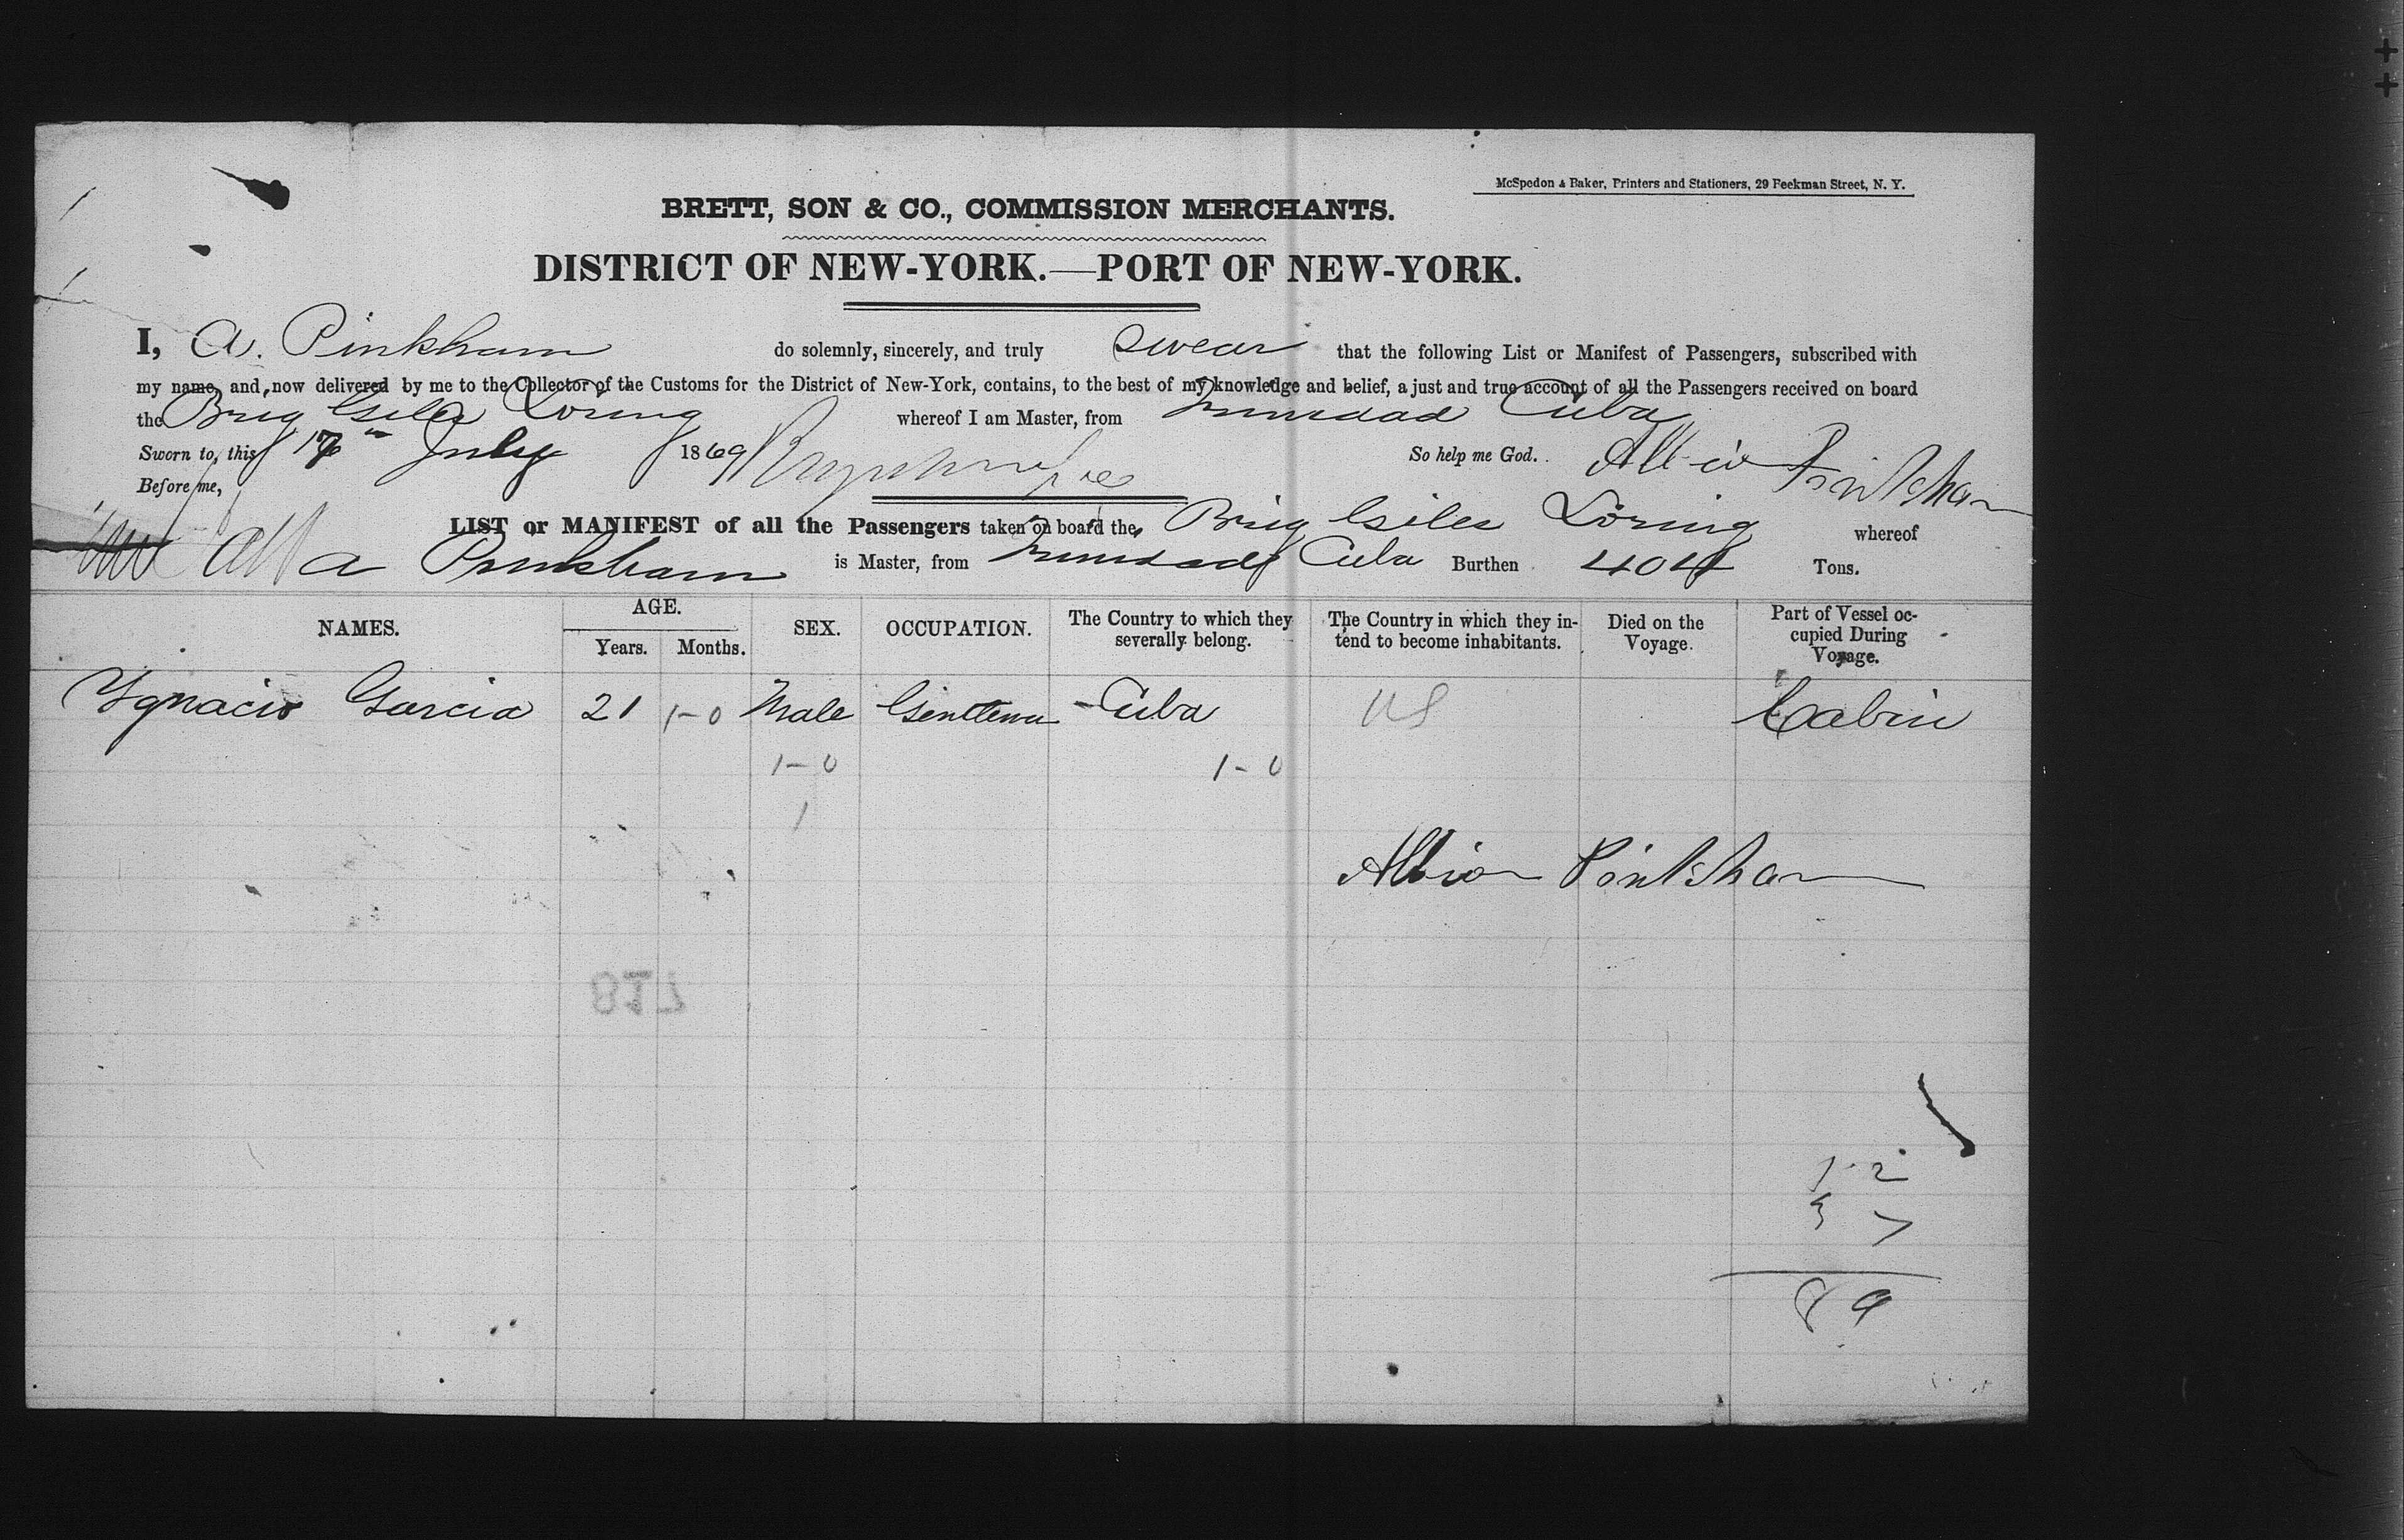 McSpedon & Baker, Printers and Stationers, 29 Beekman Street, N. Y.
BRETT, SON & CO., COMMISSION MERCHANTS.
DISTRICT OF NEW-YORK.—PORT OF NEW-YORK.
I, A. Pinkham do solemnly, sincerely, and truly swear that the following List or Manifest of Passengers, subscribed with
my name, and now delivered by me to the Collector of the Customs for the District of New-York, contains, to the best of my knowledge and belief, a just and true account of all the Passengers received on board
the Brig Giles Loring whereof I am Master, from Trinidad Cuba
Sworn to, this 17th July 1869 So help me God. Albion Pinkham
Before me,
LIST or MANIFEST of all the Passengers taken on board the Brig Giles Loring whereof
A Pinkham is Master, from Trinidad Cuba Burthen 404 Tons.
NAMES. AGE. Years. Months. SEX. OCCUPATION. The Country to which they severally belong. The Country in which they intend to become inhabitants. Died on the Voyage. Part of Vessel occupied During Voyage.
Ygnacio Garcia 21 1-0 Male Gentleman Cuba US Cabin
1-0 1-0
1
Albion Pinkham
817
1 2
5 7
8 9